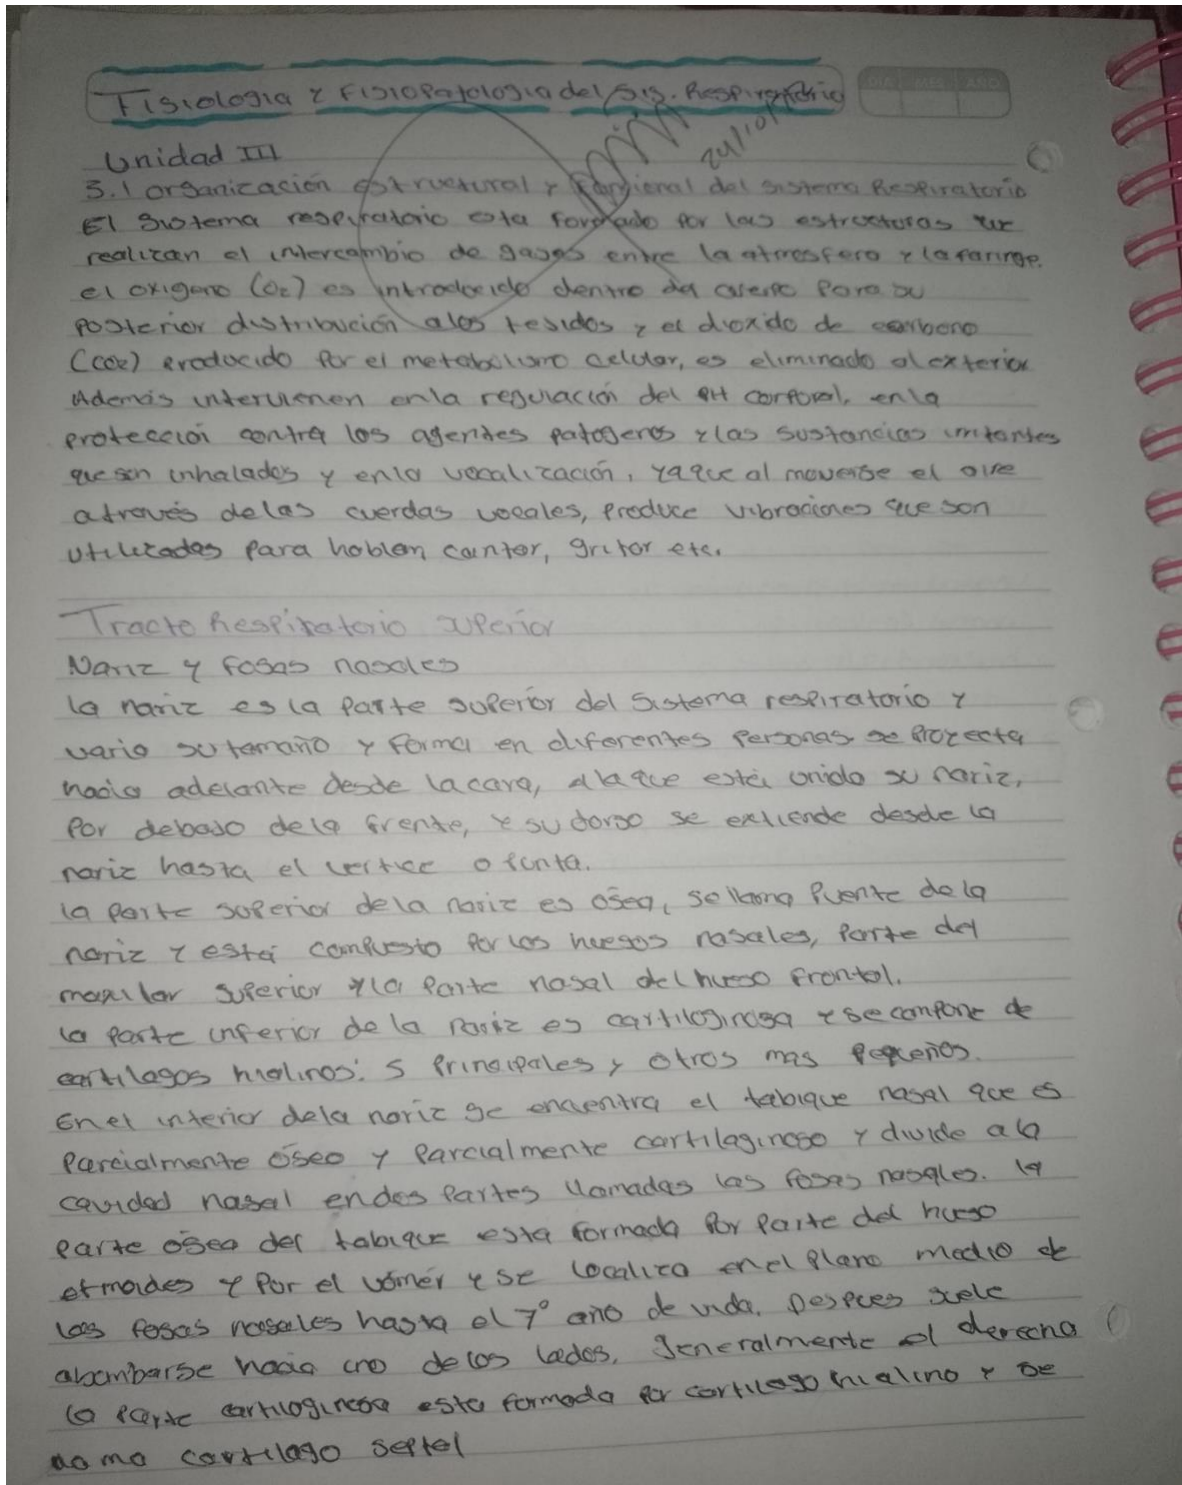 Fisiologia y Fisiopatologia del Sis. Respiratorio
DIA MES AÑO
24/10/
Unidad III
3.1 organización estructural y funcional del sistema Respiratorio
El Sistema respiratorio esta formado por las estructuras que
realizan el intercambio de gases entre la atmosfera y la faringe.
el oxigeno (O2) es introducido dentro del cuerpo para su
posterior distribución a los tesidos y el dioxido de carbono
(CO2) producido por el metabolismo celular, es eliminado al exterior
Además intervienen en la regulación del PH corporal, en la
protección contra los agentes patogenos y las sustancias irritantes
que son inhalados y en la vocalización, ya que al moverse el aire
a través de las cuerdas vocales, produce vibraciones que son
utilizadas para hablar, cantar, gritar etc.
Tracto Respiratorio superior
Nariz y fosas nasales
la nariz es la parte superior del sistema respiratorio y
varia su tamaño y forma en diferentes personas. se proyecta
hacia adelante desde la cara, a la que está unida su nariz,
por debajo de la frente, y su dorso se extiende desde la
nariz hasta el vertice o punta.
la parte superior de la nariz es ósea, se llama puente de la
nariz y está compuesto por los huesos nasales, parte del
maxilar superior y la parte nasal del hueso frontal.
la parte inferior de la nariz es cartilaginosa y se compone de
cartilagos hialinos: 5 principales y otros mas pequeños.
En el interior de la nariz se encuentra el tabique nasal que es
parcialmente óseo y parcialmente cartilaginoso y divide a la
cavidad nasal en dos partes llamadas las fosas nasales. la
parte ósea del tabique esta formada por parte del hueso
etmoides y por el vómer y se localiza en el plano medio de
las fosas nasales hasta el 7° año de vida. Despues suele
abombarse hacia uno de los lados, generalmente el derecho
la parte cartilaginosa esta formada por cartilago hialino y se
cartilago septel